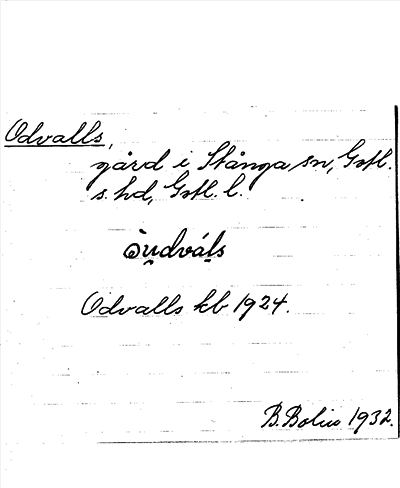 Odvalls,
gård i Stånga sn, Gotl.
s. hd, Gotl. l.
ə̀u̯dváḷs
Odvalls kb 1924.
B. Bolin 1932.